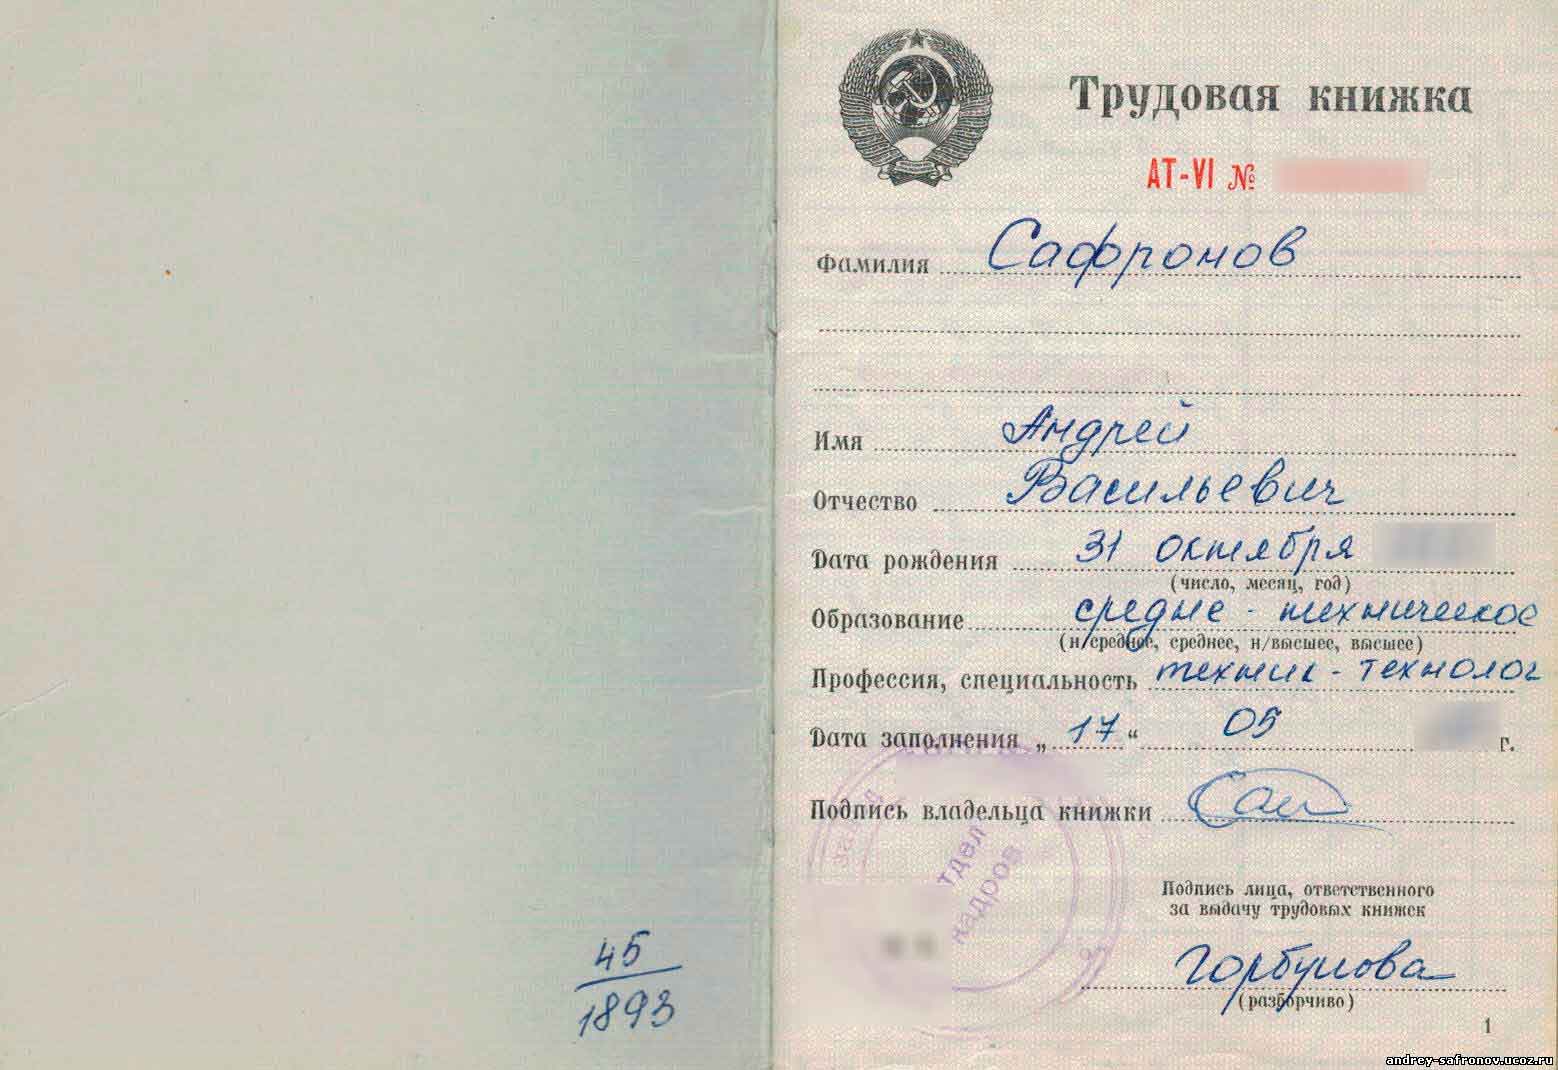 Трудовая книжка
АТ-VI №
Фамилия Сафронов
Имя Андрей
Отчество Васильевич
Дата рождения 31 октября
(число, месяц, год)
Образование средне-техническое
(н/среднее, среднее, н/высшее, высшее)
Профессия, специальность техник-технолог
Дата заполнения „17“ 05 г.
Подпись владельца книжки
завод
отдел
кадров
Подпись лица, ответственного
за выдачу трудовых книжек
Горбунова
(разборчиво)
45
1893
1
andrey-safronov.ucoz.ru